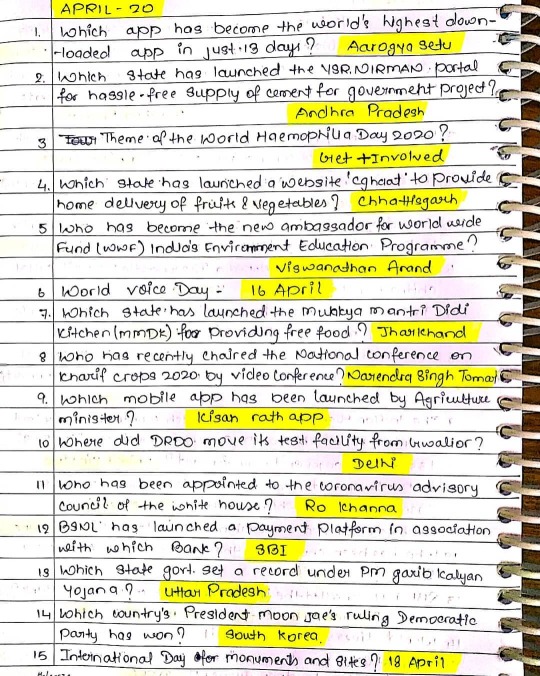 APRIL - 20
1. Which app has become the world's highest down-
-loaded app in just 13 days? Aarogya Setu
2. Which state has launched the YSR.NIRMAN portal
for hassle-free supply of cement for government project?
Andhra Pradesh
3 Theme of the World Haemophilia Day 2020?
Get +Involved
4. Which state has launched a website 'cghaat' to provide
home delivery of fruits & vegetables? Chhattisgarh
5 Who has become the new ambassador for world wide
Fund (WWF) India's Environment Education Programme?
Viswanathan Anand
6 World Voice Day - 16 April
7. Which state has launched the Mukhya mantri Didi
Kitchen (MMDK) for Providing free food? Jharkhand
8 Who has recently chaired the National conference on
kharif crops 2020 by video conference? Narendra Singh Tomar
9. Which mobile app has been launched by Agriculture
minister? Kisan rath app
10 Where did DRDO move its test facility from Gwalior?
Delhi
11 Who has been appointed to the coronavirus advisory
council of the white house? Ro Khanna
12 BSNL has launched a payment Platform in association
with which Bank? SBI
13 Which state govt. set a record under PM garib Kalyan
Yojana? Uttar Pradesh
14 Which country's President Moon Jae's ruling Democratic
Party has won? South Korea
15 International Day for monuments and sites? 18 April